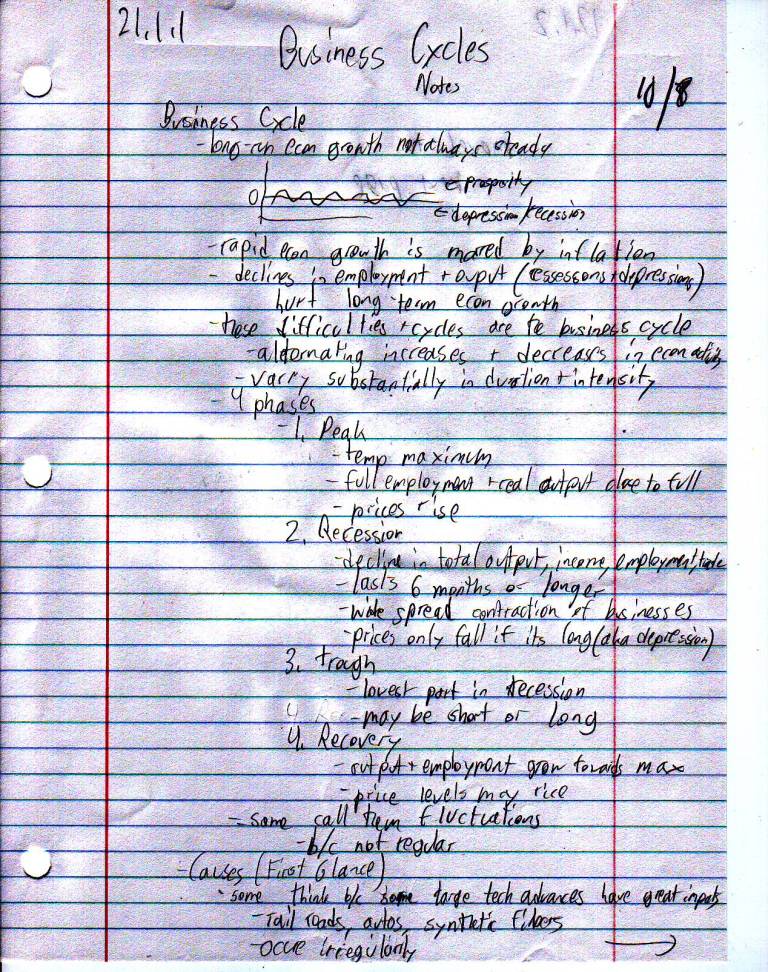 21.1.1
Business Cycles
Notes
10/8
Business Cycle
-long-run econ growth not always steady
0 ← prosperity
← depression/recession
-rapid econ growth is mared by inflation
- declines in employment + ouput (ressessons + depressions)
hurt long-term econ growth
-these difficulties + cycles are the business cycle
-alternating increases + decreases in econ activity
-varry substantially in duration + intensity
- 4 phases
-1. Peak
-temp maximum
-full employment + real output close to full
-prices rise
2. Recession
-decline in total output, income, employment, trade
-lasts 6 months or longer
-wide spread contraction of businesses
-prices only fall if its long (aka depression)
3. trough
-lowest part in recession
-may be short or long
4. Recovery
-output + employment grow towards max
-price levels may rice
-some call them fluctuations
-b/c not regular
-Causes (First Glance)
-some think b/c large tech advances have great impats
-rail roads, autos, synthetic fibers
-occur irregularily →